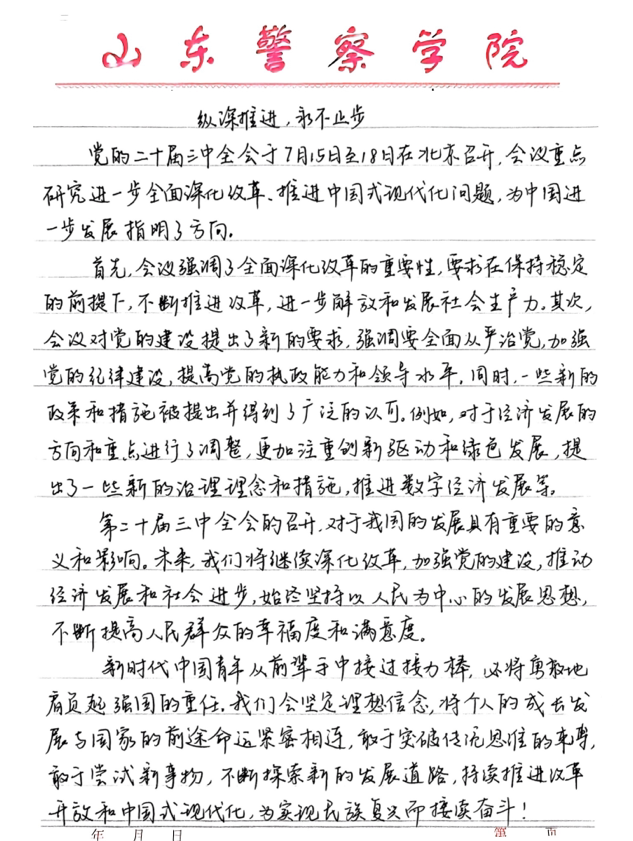 山东警察学院
纵深推进，永不止步
党的二十届三中全会于7月15日至18日在北京召开，会议重点
研究进一步全面深化改革、推进中国式现代化问题，为中国进
一步发展指明了方向。
首先，会议强调了全面深化改革的重要性，要求在保持稳定
的前提下，不断推进改革，进一步解放和发展社会生产力。其次，
会议对党的建设提出了新的要求，强调要全面从严治党，加强
党的纪律建设，提高党的执政能力和领导水平。同时，一些新的
政策和措施被提出并得到了广泛的认可。例如，对于经济发展的
方向和重点进行了调整，更加注重创新驱动和绿色发展，提
出了一些新的治理理念和措施，推进数字经济发展等。
第二十届三中全会的召开，对于我国的发展具有重要的意
义和影响。未来，我们将继续深化改革，加强党的建设，推动
经济发展和社会进步，始终坚持以人民为中心的发展思想，
不断提高人民群众的幸福度和满意度。
新时代中国青年从前辈手中接过接力棒，必将勇敢地
肩负起强国的重任。我们会坚定理想信念，将个人的成长发
展与国家的前途命运紧密相连，敢于突破传统思维的束缚，
敢于尝试新事物，不断探索新的发展道路，持续推进改革
开放和中国式现代化，为实现民族复兴而接续奋斗！
年 月 日 第 页